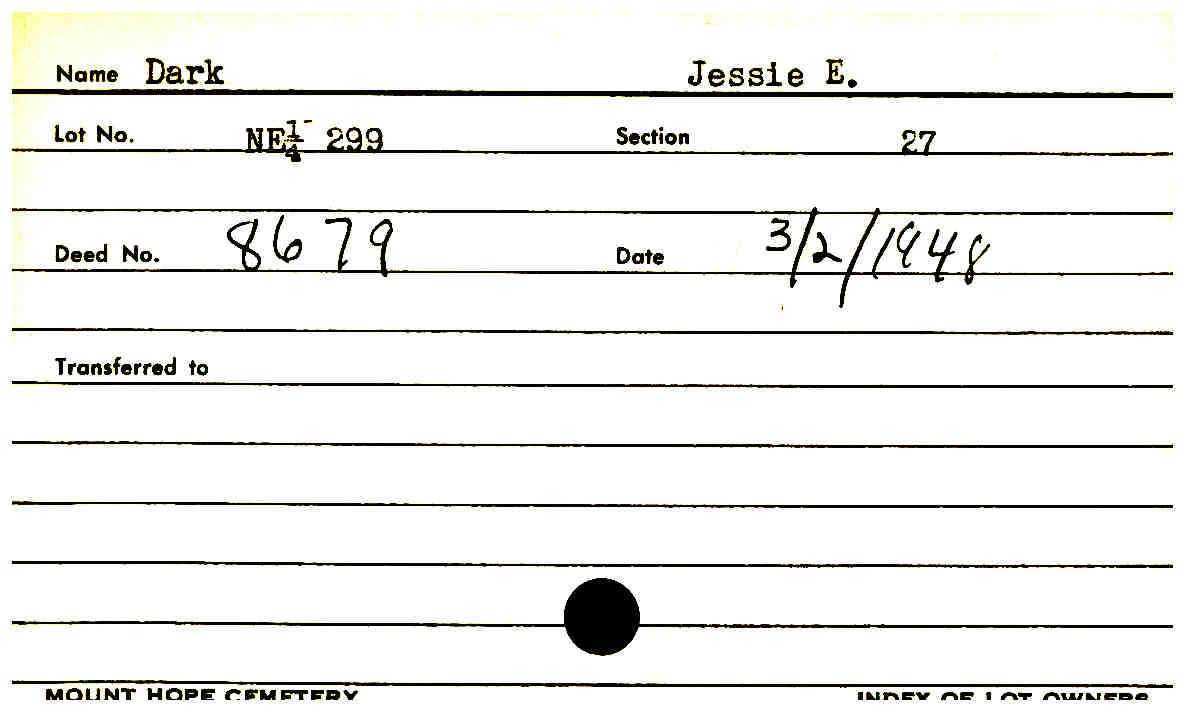 Name Dark Jessie E.
Lot No. NE¼ 299 Section 27
Deed No. 8679 Date 3/2/1948
Transferred to
MOUNT HOPE CEMETERY INDEX OF LOT OWNERS